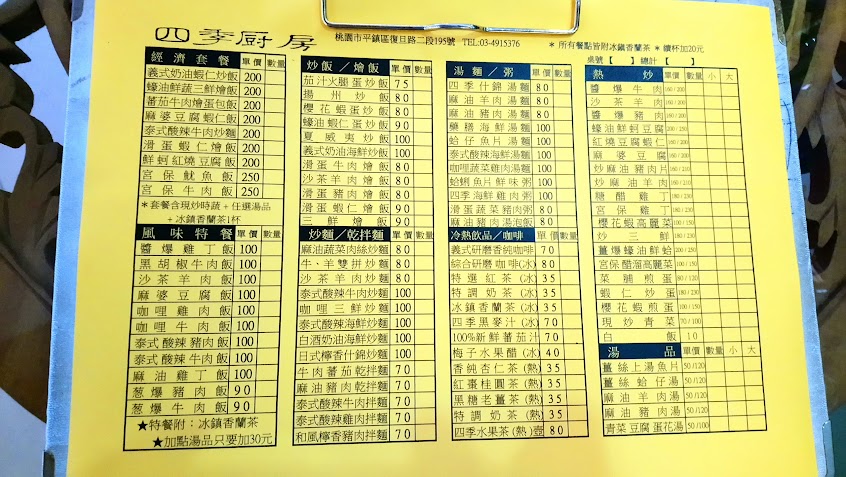 四季厨房
桃園市平鎮區復旦路二段195號 TEL:03-4915376
*所有餐點皆附冰鎮香蘭茶*續杯加20元
桌號【 】總計【 】
經濟套餐 單價 數量
義式奶油蝦仁炒飯 200
蠔油鮮蔬三鮮燴飯 200
蕃茄牛肉燴蛋包飯 200
麻婆豆腐蝦仁飯 200
泰式酸辣牛肉炒麵 200
滑蛋蝦仁燴飯 200
鮮蚵紅燒豆腐飯 200
宮保魷魚飯 250
宮保牛肉飯 250
*套餐含現炒時蔬+任選湯品
+冰鎮香蘭茶1杯
風味特餐 單價 數量
醬爆雞丁飯 100
黑胡椒牛肉飯 100
沙茶羊肉飯 100
麻婆豆腐飯 100
咖哩雞肉飯 100
咖哩牛肉飯 100
泰式酸辣豬肉飯 100
泰式酸辣牛肉飯 100
麻油雞丁飯 100
葱爆豬肉飯 90
葱爆牛肉飯 90
★特餐附：冰鎮香蘭茶
★加點湯品只要加30元
炒飯／燴飯 單價 數量
茄汁火腿蛋炒飯 75
揚州炒飯 80
櫻花蝦蛋炒飯 80
蠔油蝦仁蛋炒飯 90
夏威夷炒飯 100
義式奶油海鮮炒飯 100
滑蛋牛肉燴飯 80
沙茶羊肉燴飯 80
滑蛋豬肉燴飯 80
滑蛋蝦仁燴飯 90
三鮮燴飯 90
炒麵／乾拌麵 單價 數量
麻油蔬菜肉絲炒麵 80
牛、羊雙拼炒麵 80
沙茶羊肉炒麵 80
泰式酸辣牛肉炒麵 100
咖哩三鮮炒麵 100
泰式酸辣海鮮炒麵 100
白酒奶油海鮮炒麵 100
日式檸香什錦炒麵 100
牛肉蕃茄乾拌麵 70
麻油豬肉乾拌麵 70
泰式酸辣牛肉拌麵 70
泰式酸辣雞肉拌麵 70
和風檸香豬肉拌麵 70
湯麵／粥 單價 數量
四季什錦湯麵 80
麻油羊肉湯麵 80
麻油豬肉湯麵 80
藥膳海鮮湯麵 100
蛤仔魚片湯麵 100
泰式酸辣海鮮湯麵 100
咖哩蔬菜雞肉湯麵 100
蛤蜊魚片鮮味粥 100
四季海鮮雞肉粥 100
滑蛋蔬菜豬肉粥 80
麻油豬肉湯泡飯 80
冷熱飲品／咖啡 單價 數量
義式研磨香純咖啡 70
綜合研磨咖啡(冰) 80
特選紅茶(冰) 35
特調奶茶(冰) 35
冰鎮香蘭茶(冰) 35
四季黑麥汁(冰) 70
100%新鮮蕃茄汁 70
梅子水果醋(冰) 40
香純杏仁茶(熱) 35
紅棗桂圓茶(熱) 35
黑糖老薑茶(熱) 35
特調奶茶(熱) 35
四季水果茶(熱)壺 80
熱炒 單價 數量 小 大
醬爆牛肉 160/200
沙茶羊肉 160/200
醬爆豬肉 160/200
蠔油鮮蚵豆腐 200/250
紅燒豆腐蝦仁 180/230
麻婆豆腐
炒麻油豬肉片
炒麻油羊肉
糖醋雞丁
宮保雞丁
櫻花蝦高麗菜
炒三鮮
薑爆蠔油鮮蛤
宮保醋溜高麗菜
菜脯煎蛋
蝦仁炒蛋
櫻花蝦煎蛋
現炒青菜 70/100
白飯 10
湯品 單價 數量 小 大
薑絲上湯魚片 50/120
薑絲蛤仔湯 50/120
麻油羊肉湯 50/120
麻油豬肉湯 50/120
青菜豆腐蛋花湯 50/100